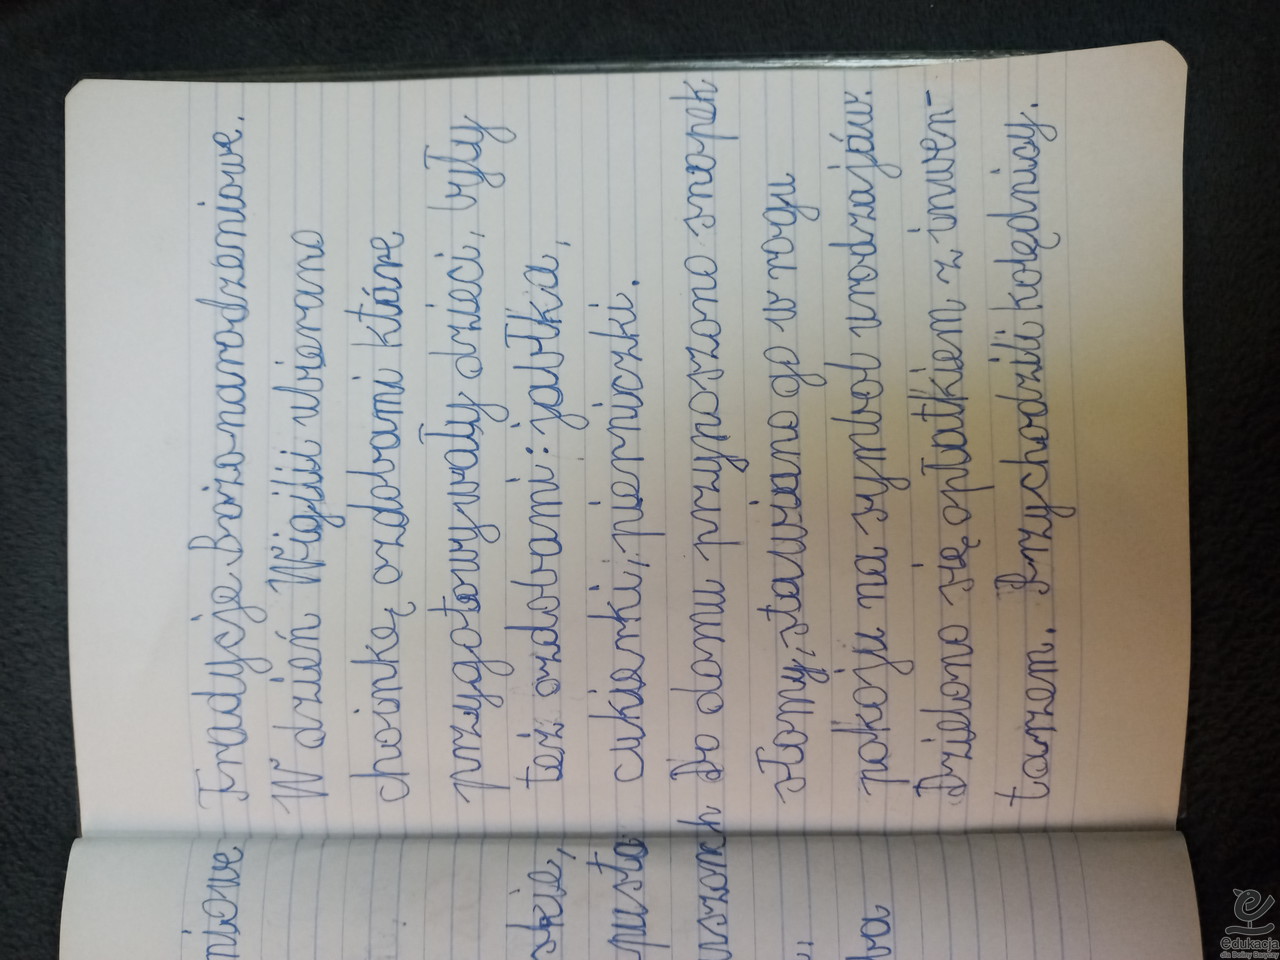 Tradycje Bożonarodzeniowe.
W dzień Wigilii ubierano
choinkę ozdobami które
przygotowywały dzieci, były
też ozdobami: jabłka,
cukierki, pierniczki.
Do domu przynoszono snopek
słomy, stawiano go w rogu
pokoju na symbol urodzajów.
Dzielono się opłatkiem z inwen-
tarzem. Przychodzili kolędnicy.
niowe
skie,
pusta
uszach
ba
edukacja
dla Doliny Baryczy